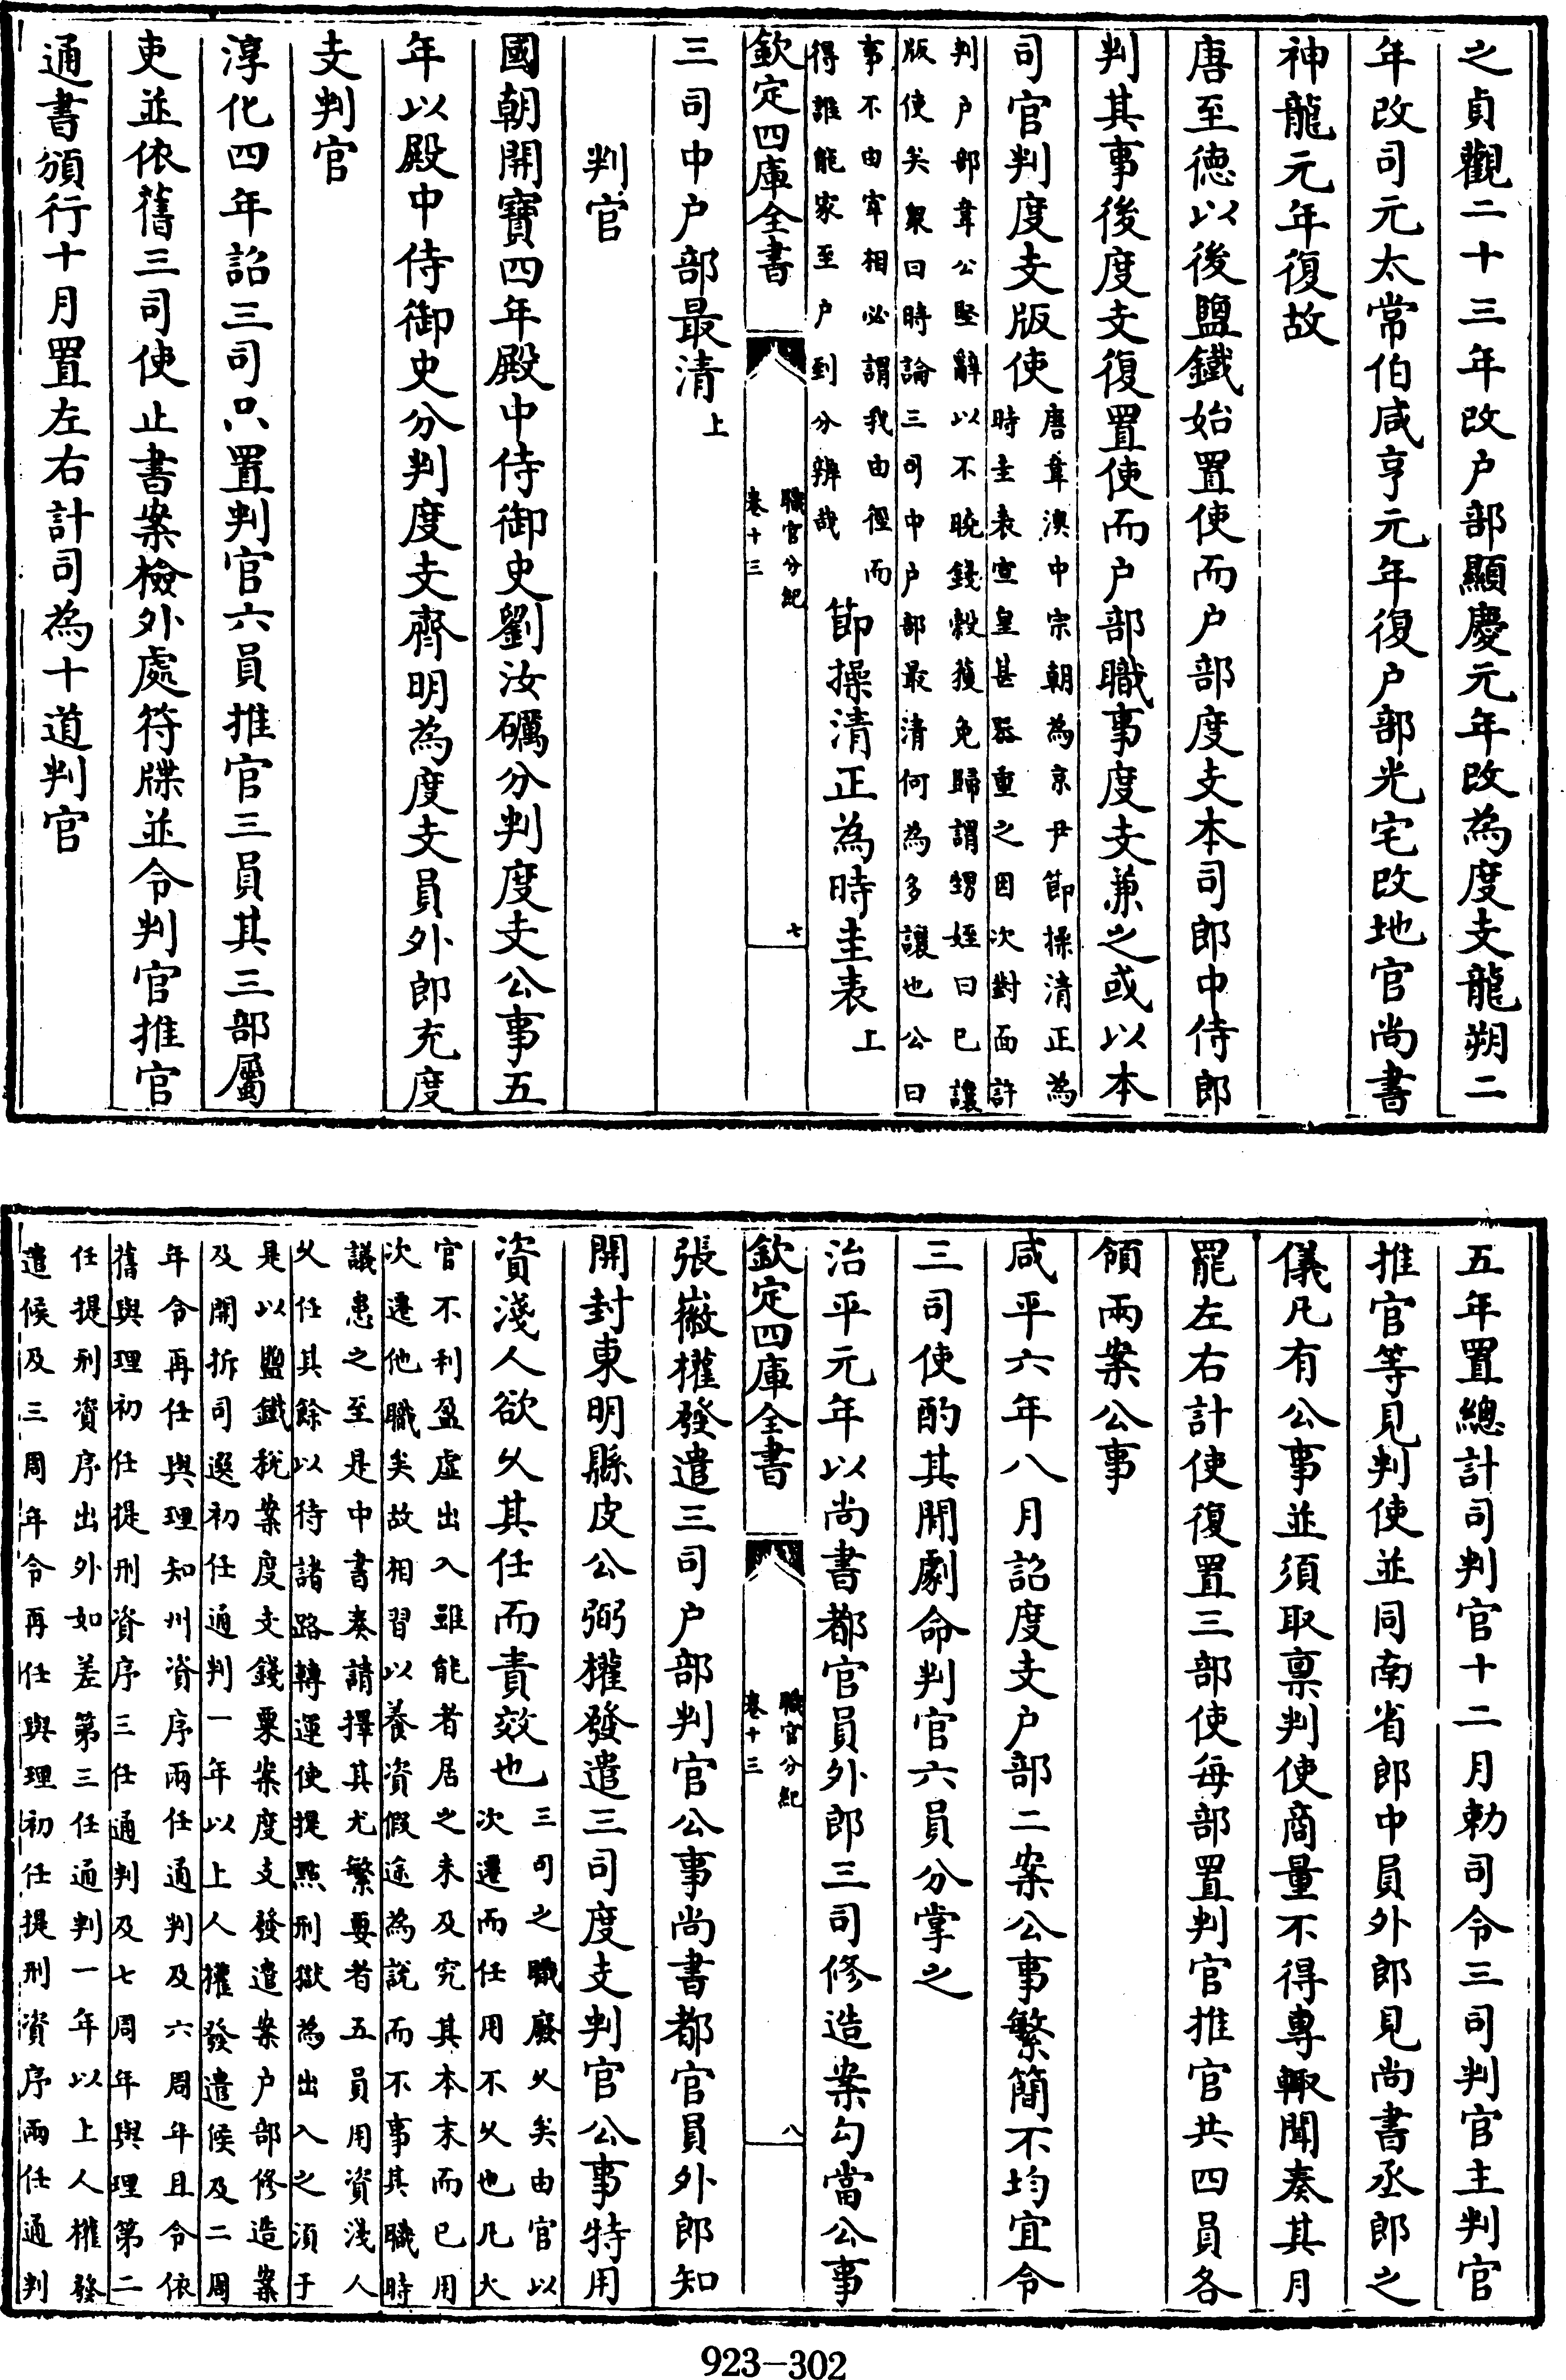 之貞觀二十三年改户部顯慶元年改為度支龍朔二
年改司元太常伯咸亨元年復户部光宅改地官尚書
神龍元年復故
唐至德以後鹽鐵始置使而户部度支本司郎中侍郎
判其事後度支復置使而户部職事度支兼之或以本
司官判度支版使
唐韋澳中宗朝為京尹節操清正為
時圭表宣皇甚器重之因次對面許
判户部韋公堅辭以不晓錢穀獲免歸謂甥姪曰已讓
版使矣衆曰時論三司中户部最清何為多讓也公曰
事不由宰相必謂我由徑而
得誰能家至户到分辨哉
節操清正為時圭表上
欽定四庫全書
職官分紀
卷十三
七
三司中户部最清上
判官
國朝開寶四年殿中侍御史劉汝礪分判度支公事五
年以殿中侍御史分判度支齊明為度支員外郎充度
支判官
淳化四年詔三司只置判官六員推官三員其三部屬
吏並依舊三司使止書案檢外處符牒並令判官推官
通書頒行十月置左右計司為十道判官
五年置總計司判官十二月勅司令三司判官主判官
推官等見判使並同南省郎中員外郎見尚書丞郎之
儀凡有公事並須取稟判使商量不得專輙聞奏其月
罷左右計使復置三部使每部置判官推官共四員各
領兩案公事
咸平六年八月詔度支户部二案公事繁簡不均宜令
三司使酌其閒劇命判官六員分掌之
治平元年以尚書都官員外郎三司修造案勾當公事
欽定四庫全書
職官分紀
卷十三
八
張徽權發遣三司户部判官公事尚書都官員外郎知
開封東明縣皮公弼權發遣三司度支判官公事特用
資淺人欲乆其任而責效也
三司之職廢乆矣由官以
次遷而任用不乆也凡大
官不利盈虛出入雖能者居之未及究其本末而已用
次遷他職矣故相習以養資假途為説而不事其職時
議患之至是中書奏請擇其尤繁要者五員用資淺人
乆任其餘以待諸路轉運使提點刑獄為出入之須于
是以鹽鐵税案度支錢粟案度支發遣案户部修造案
及開拆司選初任通判一年以上人權發遣候及二周
年令再任與理知州資序兩任通判及六周年且令依
舊與理初任提刑資序三任通判及七周年與理第二
任提刑資序出外如差第三任通判一年以上人權發
遣候及三周年令再任與理初任提刑資序兩任通判
923-302